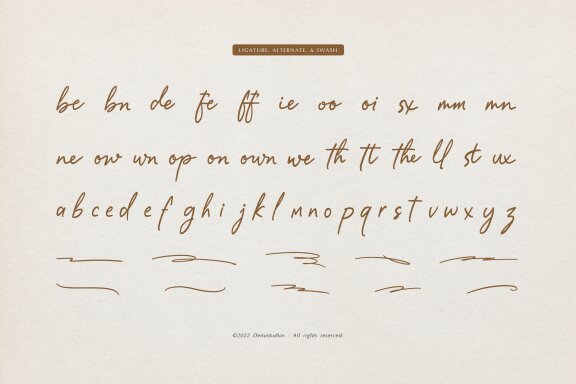 LIGATURE, ALTERNATE, & SWASH
be bn de fe ff ie oo oi sx mm mn
ne ow wn op on own we th tt the ll st ux
a b c e d e f g h i j k l m n o p q r s t v w x y z
©2022 Denustudios - All rights reserved.